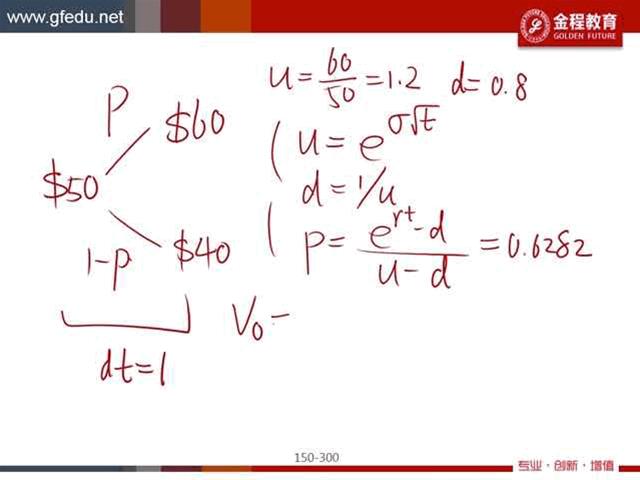 www.gfedu.net
金程教育
GOLDEN FUTURE
u = 60/50 = 1.2 d = 0.8
p $60
u = e^σ√t
$50
d = 1/u
1-p $40
p = e^rt - d / u - d = 0.6282
V₀ -
dt = 1
150-300
专业·创新·增值